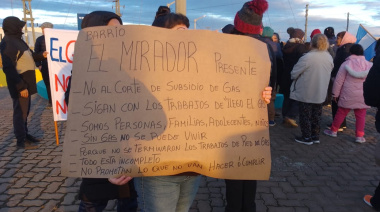 BARRIO
EL MIRADOR PRESENTE
- NO AL CORTE DE SUBSIDIO DE GAS
- SIGAN CON LOS TRABAJOS DE TIEGO EL GAS
- SOMOS PERSONAS, FAMILIAS, ADOLECENTES, NIÑOS
SIN GAS NO SE PUEDE VIVIR
PORQUE NO SE TERMINARON LOS TRABAJOS DE RED DE GAS
TODO ESTA INCOMPLETO
NO PROMETAN LO QUE NO VAN HACER ó CUMPLIR
EL
NO